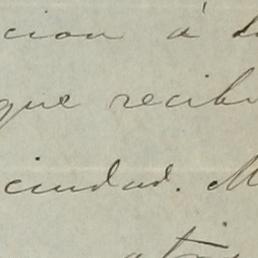 cion á
que recib
ciudad. M